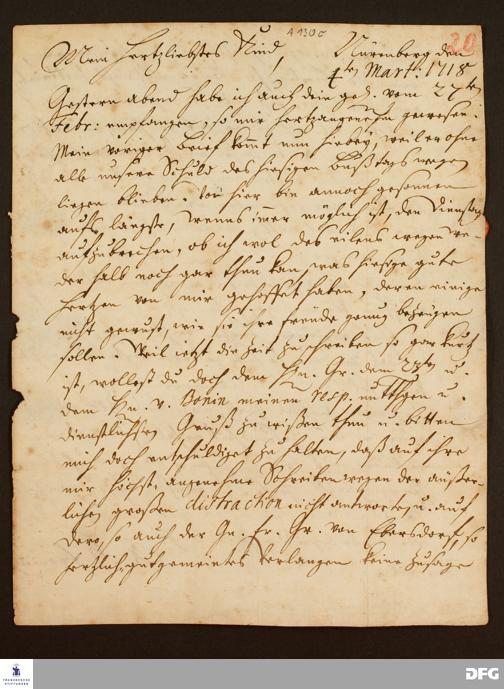 A 130 c
20
Mein Hertzliebstes Kind, Nürnberg den
4ten Mart: 1718
Gestern abend habe ich auch dein gel. vom 27ten
Febr: empfangen, so mir hertzangenehm gewesen.
Mein voriger Brief komt nun hiebey, weil er ohne
alle unsere Schuld des hiesigen Bußtags wegen
liegen blieben. Von hier bin annoch gesonnen
aufs längste, wenns immer möglich ist, den Dienstag
aufzubrechen, ob ich wol des eilens wegen we-
der halb noch gar thun kan, was hiesige gute
Hertzen von mir gehoffet haben, deren einige
nicht gewust, wie sie ihre freude genug bezeugen
sollen. Weil ietzt die zeit zu schreiben so gar kurtz
ist, wollest du doch dem Hn. Gr. dem 23ten u.
dem Hn. v. Bonin meinen resp. u.
dienstlichsten Gruß zu wißen thun u. bitten
mich doch entschuldiget zu halten, daß auf ihre
mir höchst angenehme Schreiben wegen der äußer-
lichen großen distraction nicht antworte, u. auf
dero, so auch der Gn. Fr. Gr. von Ebersdorf, so
hertzlich gutgemeintes Verlangen keine zusage
FRANCKESCHE STIFTUNGEN
DFG